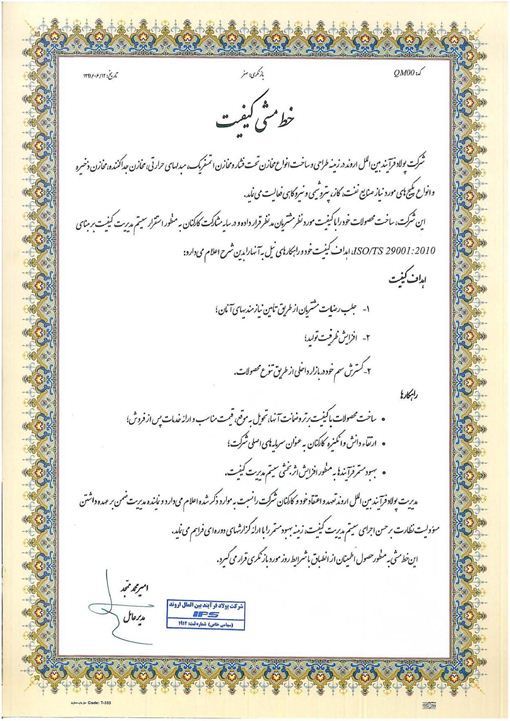 کد: QM00
بازنگری: صفر
تاریخ:
خط مشی کیفیت
شرکت پولاد فرآیند بین الملل اروند در زمینه طراحی و ساخت انواع مخازن تحت فشار و مخازن اتمسفریک، مبدلهای حرارتی، مخازن جداکننده، مخازن ذخیره
و انواع پکیج‌های مورد نیاز صنایع نفت، گاز، پتروشیمی و نیروگاهی فعالیت می‌نماید.
این شرکت، ساخت محصولات خود را با کیفیت مورد نظر مشتریان مد نظر قرار داده و در سایه مشارکت کارکنان به منظور استقرار سیستم مدیریت کیفیت بر مبنای
ISO/TS 29001:2010، اهداف کیفیت خود و راهکارهای نیل به آنها را بدین شرح اعلام می‌دارد:
اهداف کیفیت
۱- جلب رضایت مشتریان از طریق تأمین نیازمندیهای آنان؛
۲- افزایش ظرفیت تولید؛
۳- گسترش سهم خود در بازار داخلی از طریق تنوع محصولات.
راهکارها
• ساخت محصولات با کیفیت برتر و ضمانت آنها، تحویل به موقع، قیمت مناسب و ارائه خدمات پس از فروش؛
• ارتقاء دانش و انگیزه کارکنان به عنوان سرمایه‌های اصلی شرکت؛
• بهبود مستمر فرآیندها به منظور افزایش اثربخشی سیستم مدیریت کیفیت.
مدیریت پولاد فرآیند بین الملل اروند تعهد و اعتقاد خود و کارکنان شرکت را نسبت به موارد ذکر شده اعلام می‌دارد و نماینده مدیریت ضمن بر عهده داشتن
مسؤولیت نظارت بر حسن اجرای سیستم مدیریت کیفیت، زمینه بهبود مستمر را با ارائه گزارشهای دوره‌ای فراهم می‌نماید.
این خط مشی به منظور حصول اطمینان از انطباق با شرایط روز مورد بازنگری قرار می‌گیرد.
امیرمحمد
مدیرعامل
شرکت پولاد فرآیند بین الملل اروند
IPS
(سهامی خاص) شماره ثبت
Code: T-353